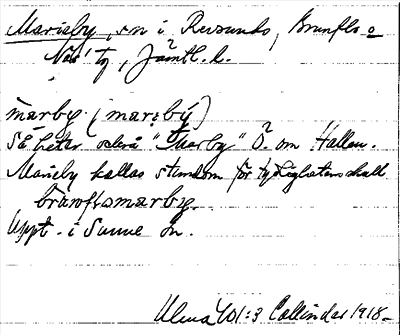 Marieby, sn i Revsunds, Brunflo o
Näs' tg, Jämtl. l.
marby (marẹbý)
Så heter också "Marby" Ö. om Hallen.
Marieby kallas stundom för tydlighetens skull
bràwflomarby.
Uppt. i Sunne sn.
Ulma 401:3 Collinder 1918-